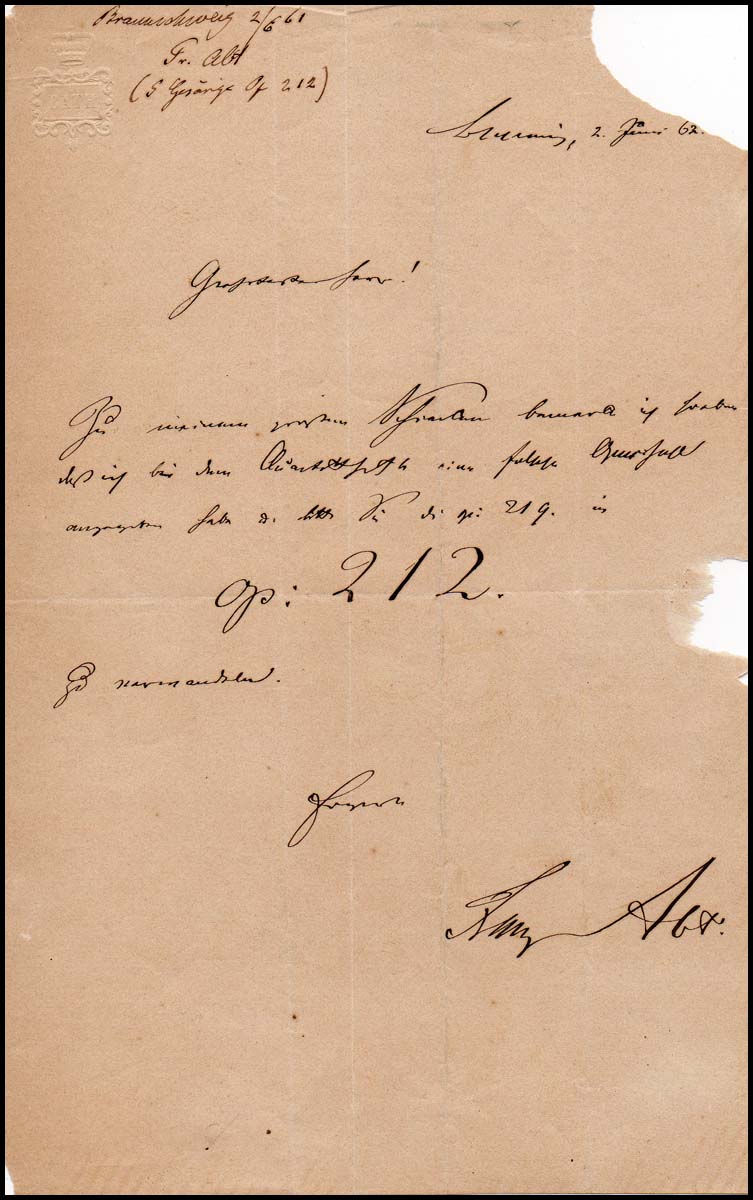 Braunschweig 2/6 61
Fr. Abt
(5 Gesänge Op 212)
BATH
2. Juni 62.
Geehrtester Herr!
Zu meinem großen Schrecken bemerke ich soeben
daß ich bei dem eine falsche Opuszahl
angegeben habe u. bitte Sie die op: 219. in
op: 212.
zu verwandeln.
Franz Abt.